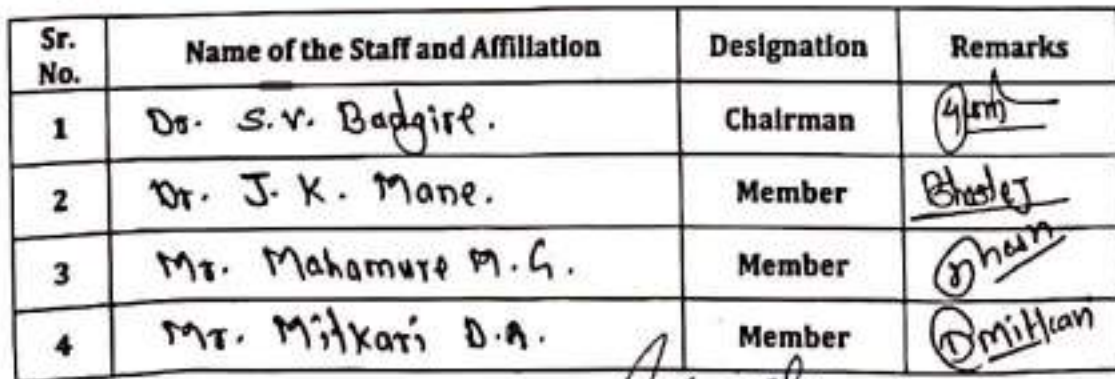 Sr. No. Name of the Staff and Affiliation Designation Remarks
1 Dr. S.V. Badgire. Chairman
2 Dr. J. K. Mane. Member
3 Mr. Mahamure M.G. Member
4 Mr. Mitkari D.A. Member Dmitkari